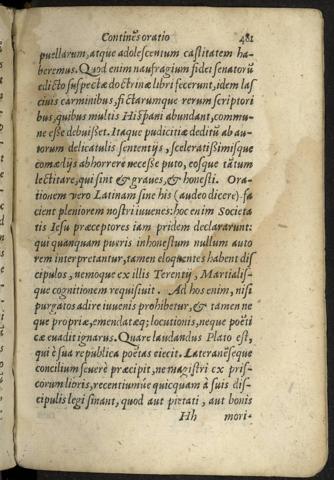 Continẽs oratio 481
puellarum, atque adolescentum castitatem ha-
beremus. Quod enim naufragium fidei senatorũ
edicto suspectæ doctrinæ libri fecerunt, idem las
civis carminibus, fictarumque rerum scriptori
bus, quibus multis Hispani abundant, commu-
ne esse debuisset. Itaque pudicitiæ deditũ ab au-
torum delicatulis sententijs, sceleratißimisque
comœdijs abhorrere necesse puto, eosque tãtum
lectitare, qui sint & graues, & honesti. Ora-
tionem vero Latinam sine his (audeo dicere) fa
cient pleniorem nostri iuuenes: hoc enim Societa
tis Iesu præceptores iam pridem declararunt:
qui quanquam pueris inhonestum nullum auto
rem interpretantur, tamen eloquentes habent dis
cipulos, nemoque ex illis Terentij, Martialis-
que cognitionem requisiuit. Ad hos enim, nisi
purgatos adire iuuenis prohibetur, & tamen ne
que propriæ, emendatæq; locutionis, neque poëti
cæ euadit ignarus. Quare laudandus Plato est,
qui è sua republica poëtas eiecit. Lateranẽseque
concilium seuerè præcipit, ne magistri ex pris-
corum libris, recentiumúe quicquam à suis dis-
cipulis legi sinant, quod aut pietati, aut bonis
Hh mori-